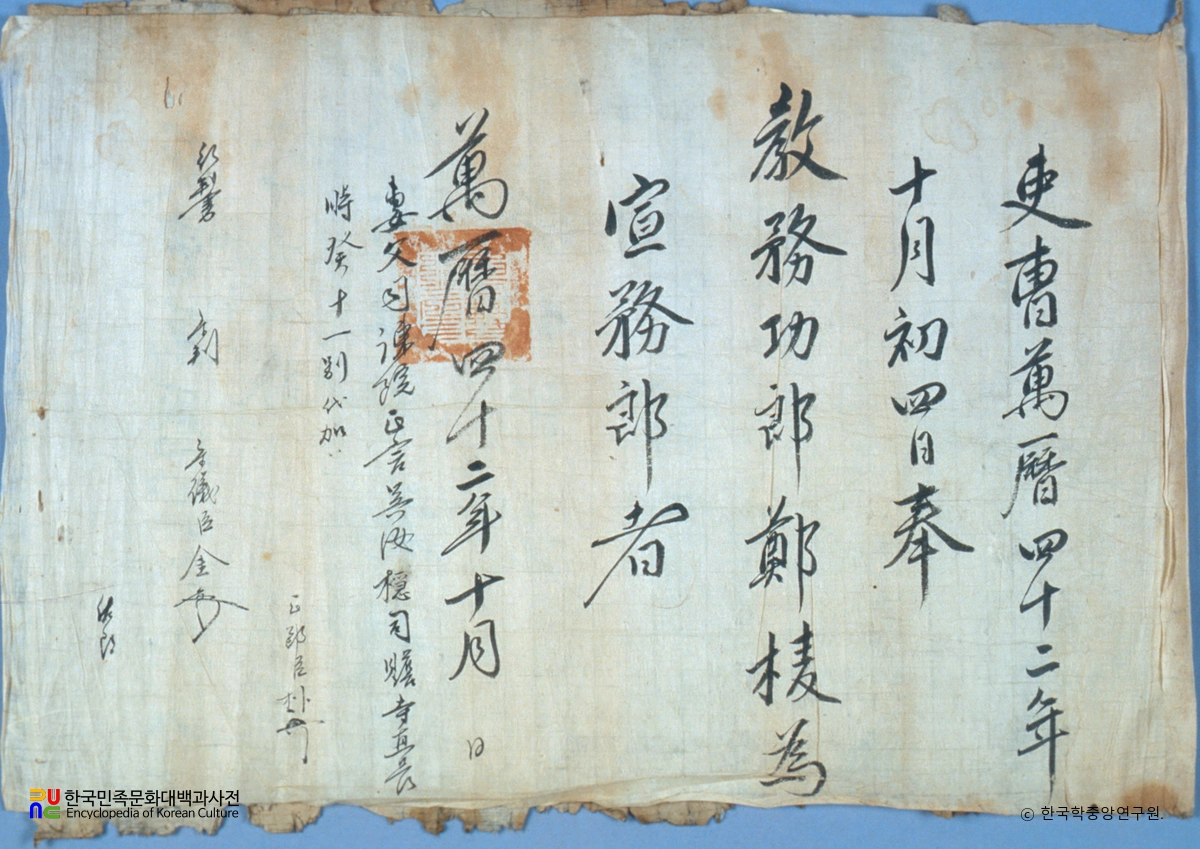 吏曹萬曆四十二年
十月初四日奉
敎務功郎鄭棱為
宣務郎者
萬曆四十二年十月 日
妻父司諫院正言吳汝穩司贍寺直長
時癸十一別代加
正郎臣朴
判書
參議臣金
佐郎
한국민족문화대백과사전
Encyclopedia of Korean Culture
ⓒ 한국학중앙연구원.